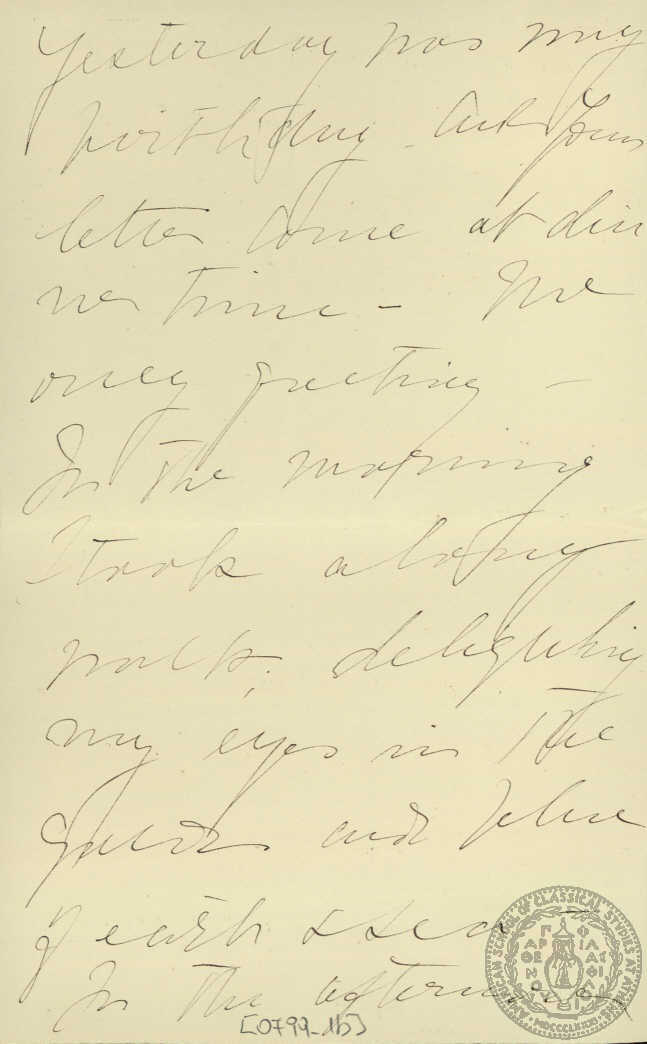 Yesterday was my
birthday - and your
letter came at din
ner time - The
only greeting -
In the morning
I took a long
walk, delighting
my eyes in the
greens and blue
of earth & sea -
In the afternoon
[0799_1b]
AMERICAN SCHOOL OF CLASSICAL STUDIES AT ATHENS
MDCCCLXXXI